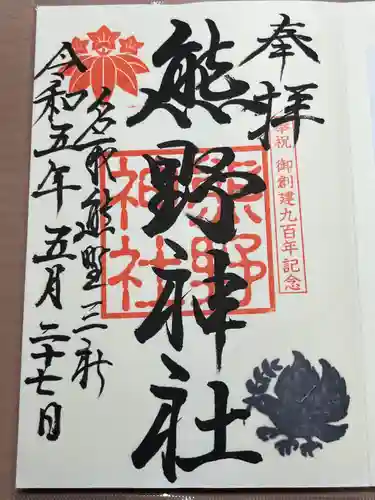 奉拝
奉祝 御創建九百年記念
熊野神社
熊野神社
名取熊野三社
令和五年五月二十七日